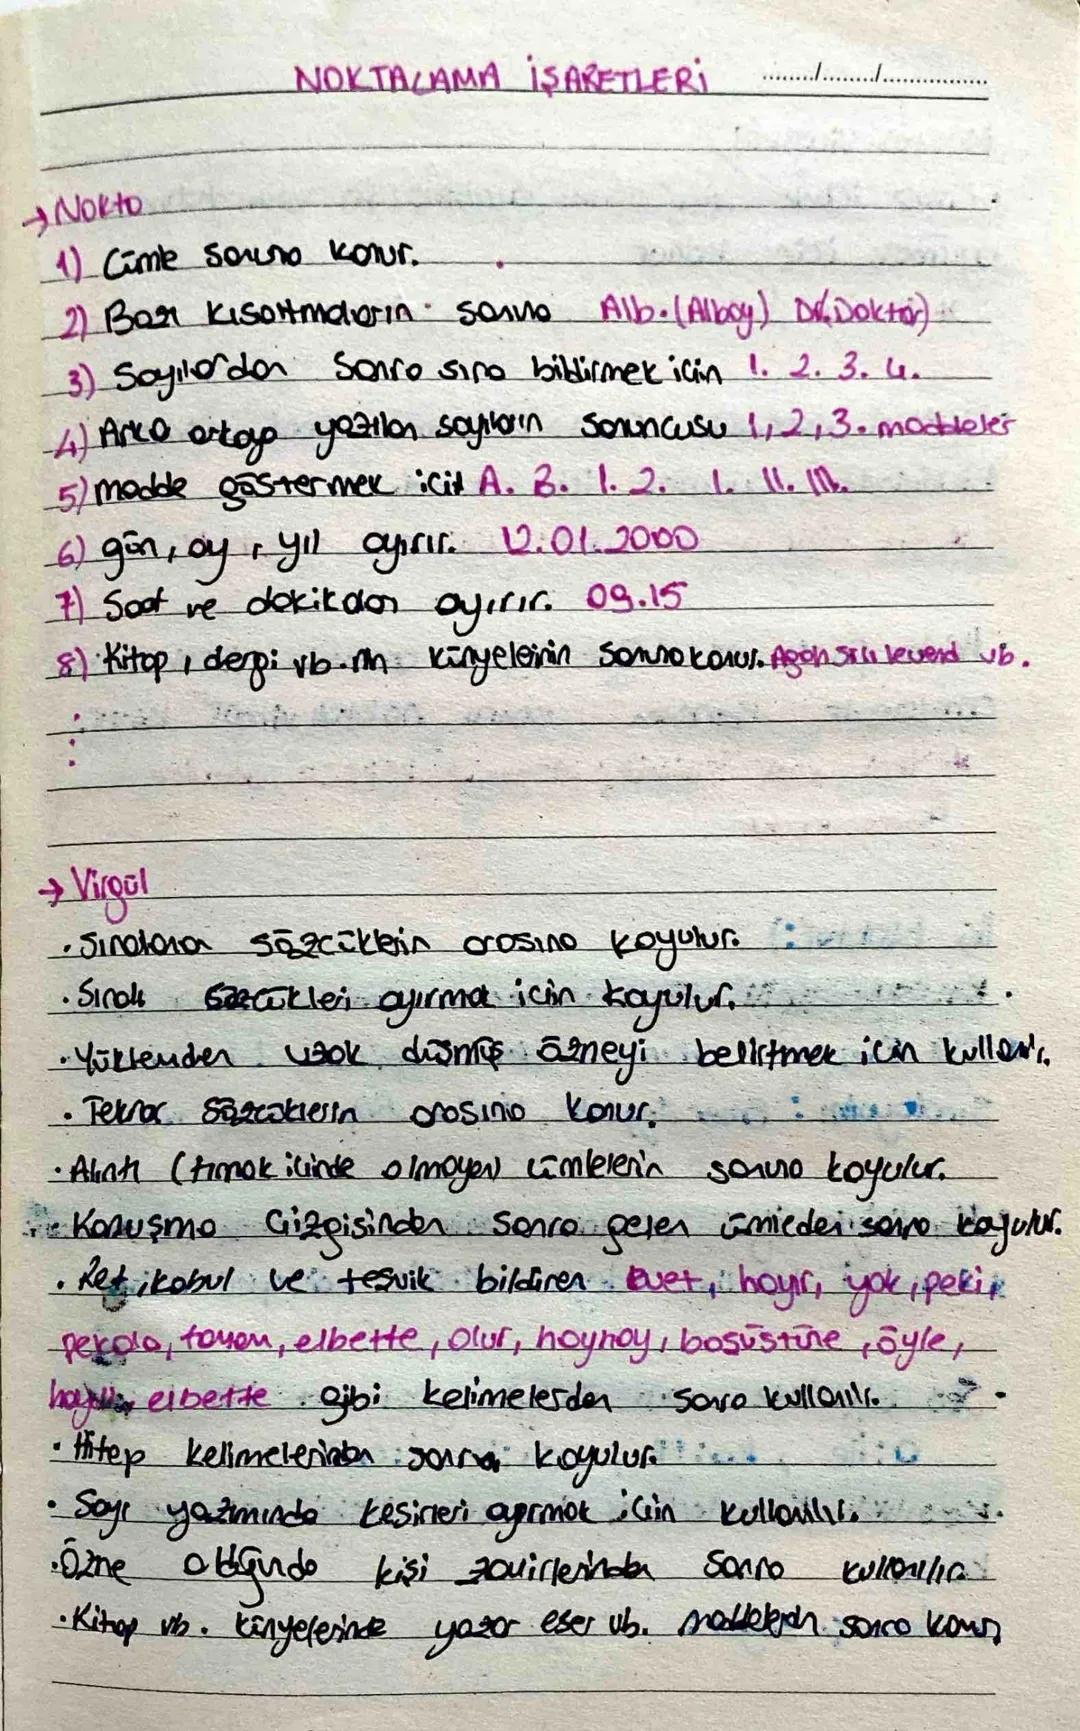 NOKTALAMA İŞARETLERİ ........./........./................
→ Nokta
1) Cümle sonuna konur.
2) Bazı kısaltmaların sonuna Alb. (Albay) Dr.(Doktor)
3) Sayılardan sonra sıra bildirmek için 1. 2. 3. 4.
4) Arka arkaya yazılan sayıların sonuncusu 1, 2, 3. maddeler
5) madde göstermek için A. B. 1. 2. I. II. III.
6) gün, ay, yıl ayırır. 12.01.2000
7) Saat ve dakikaları ayırır. 09.15
8) Kitap, dergi vb.nin künyelerinin sonuna konur. Agah Sırrı Levend vb.
→ Virgül
• Sıralanan sözcüklerin arasına koyulur.
• Sıralı ayırmak için koyulur.
• Yüklemden uzak düşmüş özneyi belirtmek için kullanılır.
• Tekrar sözcüklerin arasına konur.
• Alıntı (tırnak içinde olmayan) cümlelerin sonuna koyulur.
• Konuşma Çizgisinden sonra gelen cümleden sonra koyulur.
• Ret, kabul ve teşvik bildiren Evet, hayır, yok, peki,
pekala, tamam, elbette, olur, haynay, başüstüne, öyle,
elbette gibi kelimelerden sonra kullanılır.
• Hitap kelimelerinden sonra koyulur.
• Sayı yazımında kesirleri ayırmak için kullanılır.
• Özne olduğunda kişi zamirlerinden sonra kullanılır
• Kitap vb. künyelerinde yazar eser vb. maddelerden sonra konur